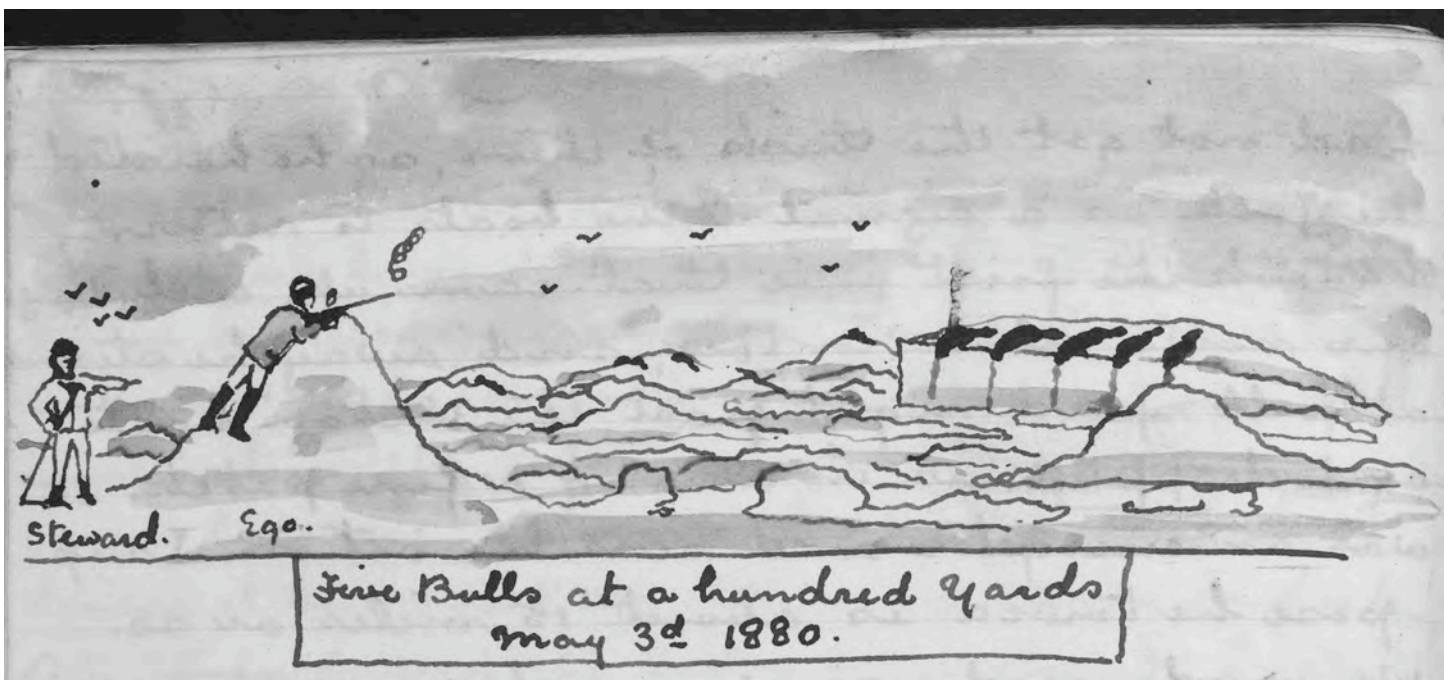 Steward. Ego..
Five Bulls at a hundred Yards
May 3d 1880.